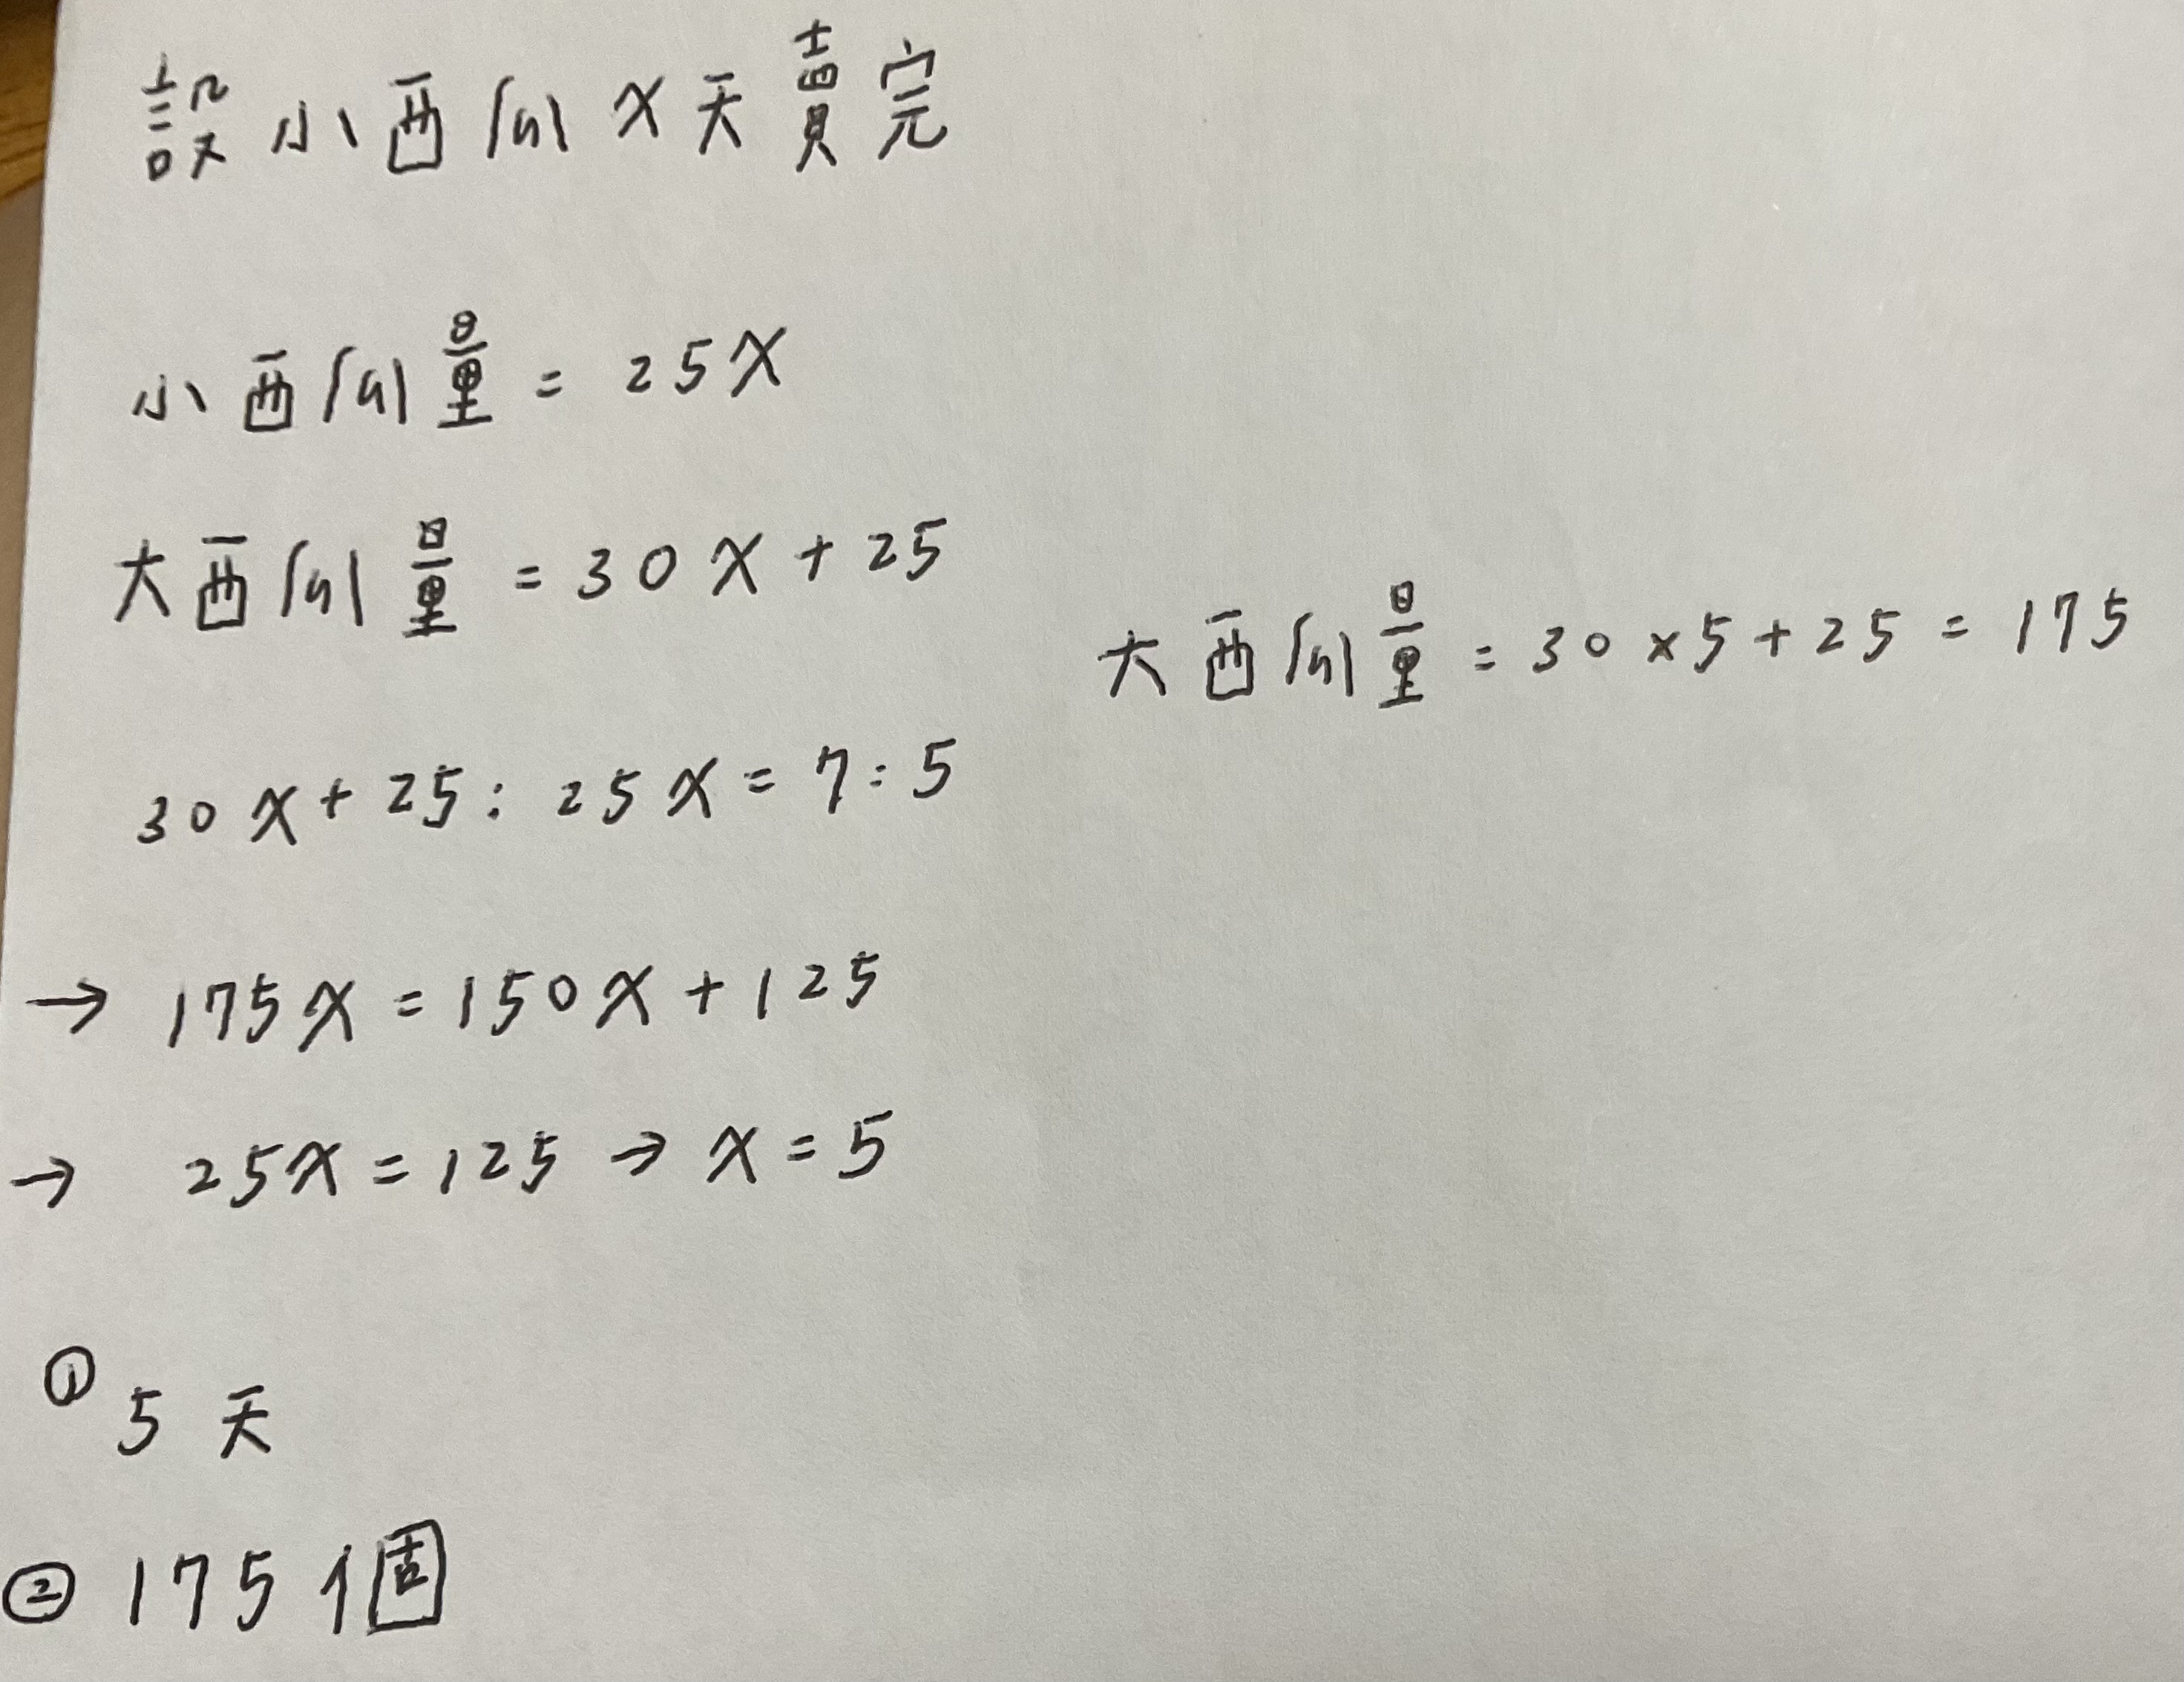 設小西瓜X天賣完
小西瓜量 = 25X
大西瓜量 = 30X + 25
大西瓜量 = 30 × 5 + 25 = 175
30X + 25 : 25X = 7 : 5
→ 175X = 150X + 125
→ 25X = 125 → X = 5
① 5 天
② 175 個